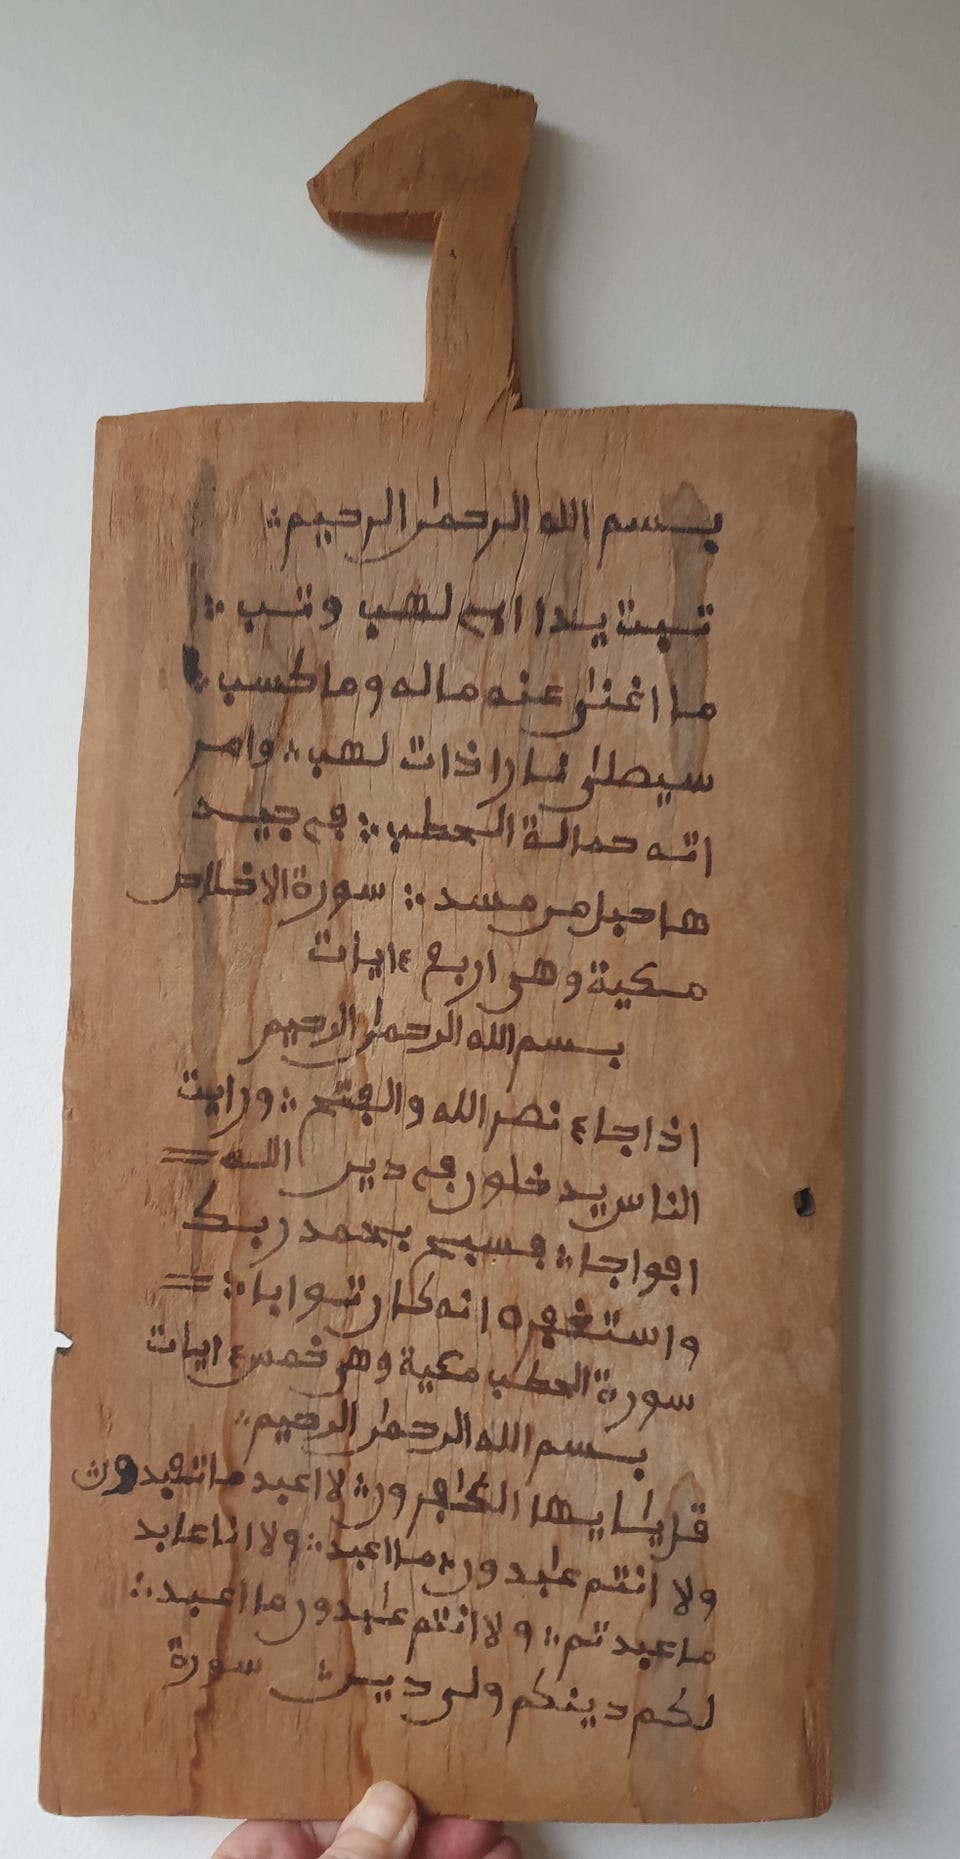 بسم الله الرحمٰن الرحيم
تبت يدا ابي لهب وتب
ما اغنىٰ عنه ماله وما كسب
سيصلىٰ نارا ذات لهب وامر
اته حمالة الحطب في جيد
ها حبل من مسد سورة الاخلاص
مكية وهي اربع ٤ ايات
بسم الله الرحمٰن الرحيم
اذا جاء نصر الله والفتح ورايت
الناس يدخلون في دين الله =
افواجا فسبح بحمد ربك
واستغفره انه كان توابا =
سورة الحطب مكية وهي خمس ٤ ايات
بسم الله الرحمٰن الرحيم
قل يٰايها الكٰفرون لا اعبد ما تعبدون
ولا انتم عٰبدون ما اعبد ولا انا عابد
ما عبدتم ولا انتم عٰبدون ما اعبد
لكم دينكم ولي دين سورة